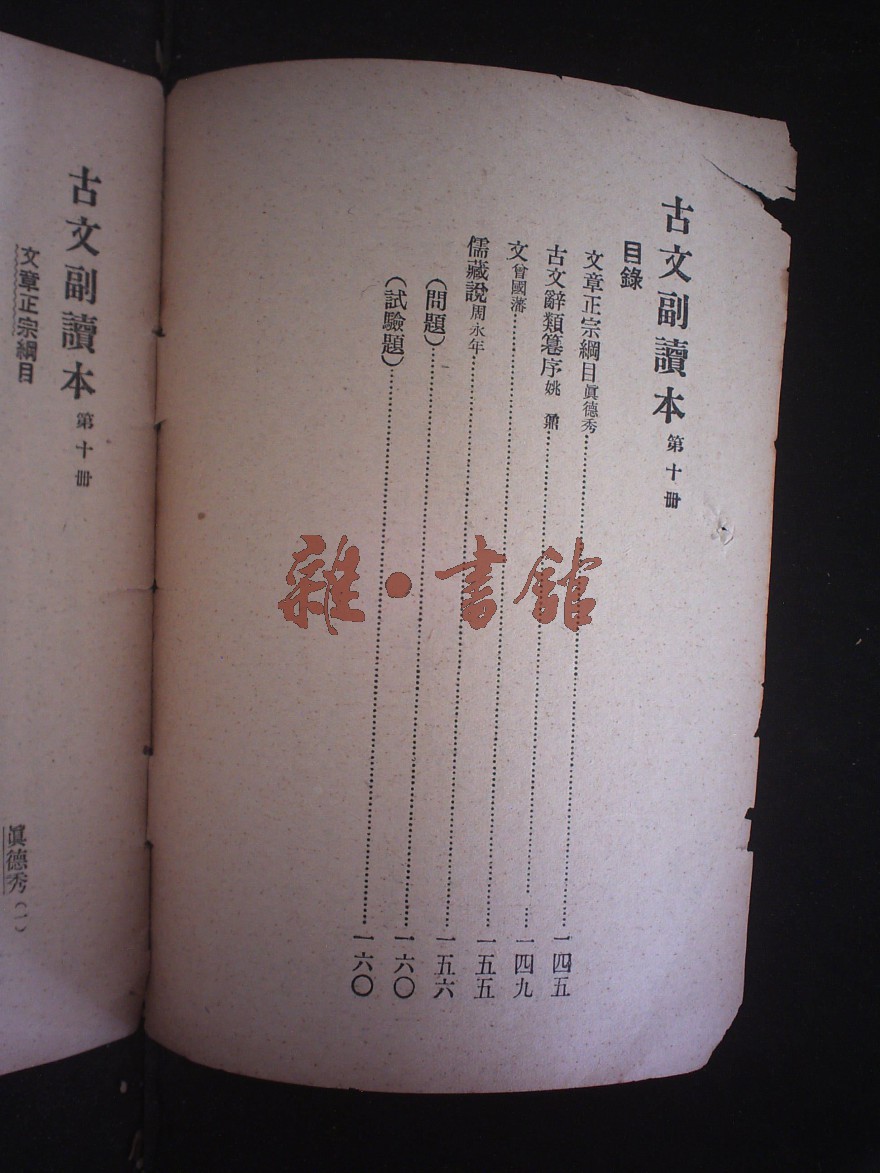 古文副讀本 第十冊
目錄
文章正宗綱目 眞德秀……一四五
古文辭類篹序 姚鼐……一四九
文 曾國藩……一五五
儒藏說 周永年……一五六
（問題）……一六〇
（試驗題）……一六〇
古文副讀本 第十冊
文章正宗綱目
眞德秀（一）
雜•書館